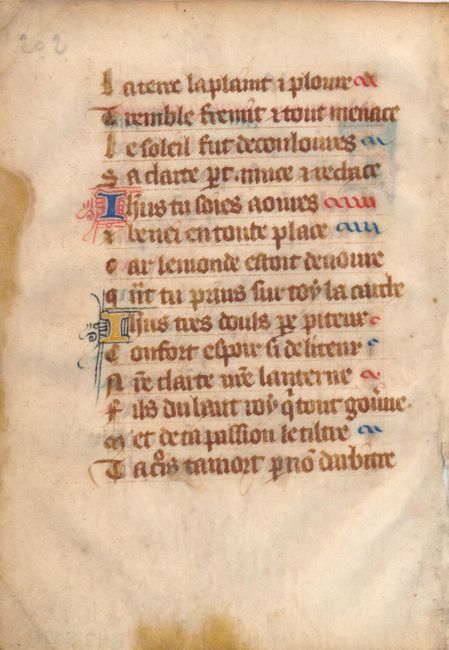 202
La terre la plaint ⁊ ploure
Tremble fremit ⁊ tout menace
Le soleil fut decouloures
Sa clarte pert muce ⁊ reclace
Ihus tu soies aoures
⁊ benei en toute place
Car le monde estoit deuoure
Qñt tu prins sur toy la
Ihus tres douls per piteux
Confort espoir si deliteux
Nr̃e clarte nr̃e lanterne
Fils du haut roy q̃ tout goũne
Met de ta passion le tiltre
Ta mort